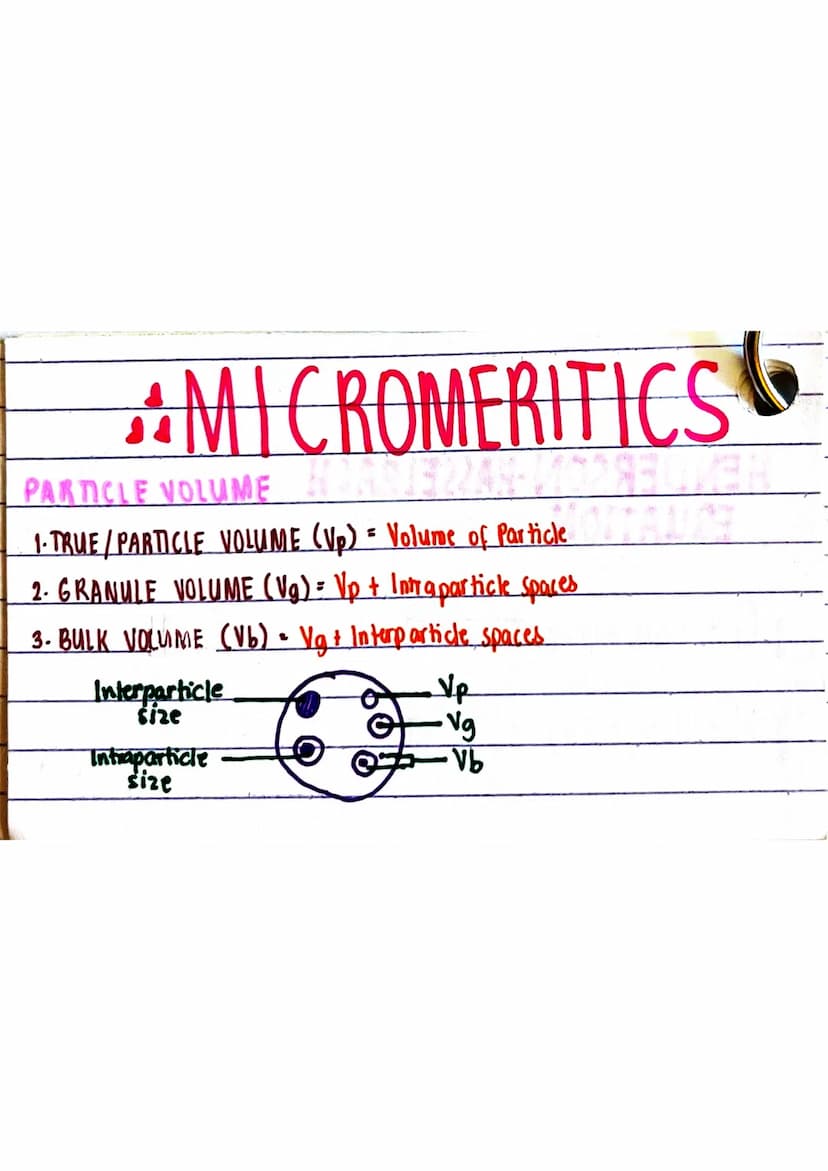 MICROMERITICS
PARTICLE VOLUME
HENDERSON-HASSELBACH
EQUATION
1. TRUE/PARTICLE VOLUME (Vp) = Volume of Particle
2. GRANULE VOLUME (Vg) = Vp + Intraparticle spaces
3. BULK VOLUME (Vb) = Vg + Interparticle spaces
Interparticle
size
Intraparticle
size
Vp
Vg
Vb